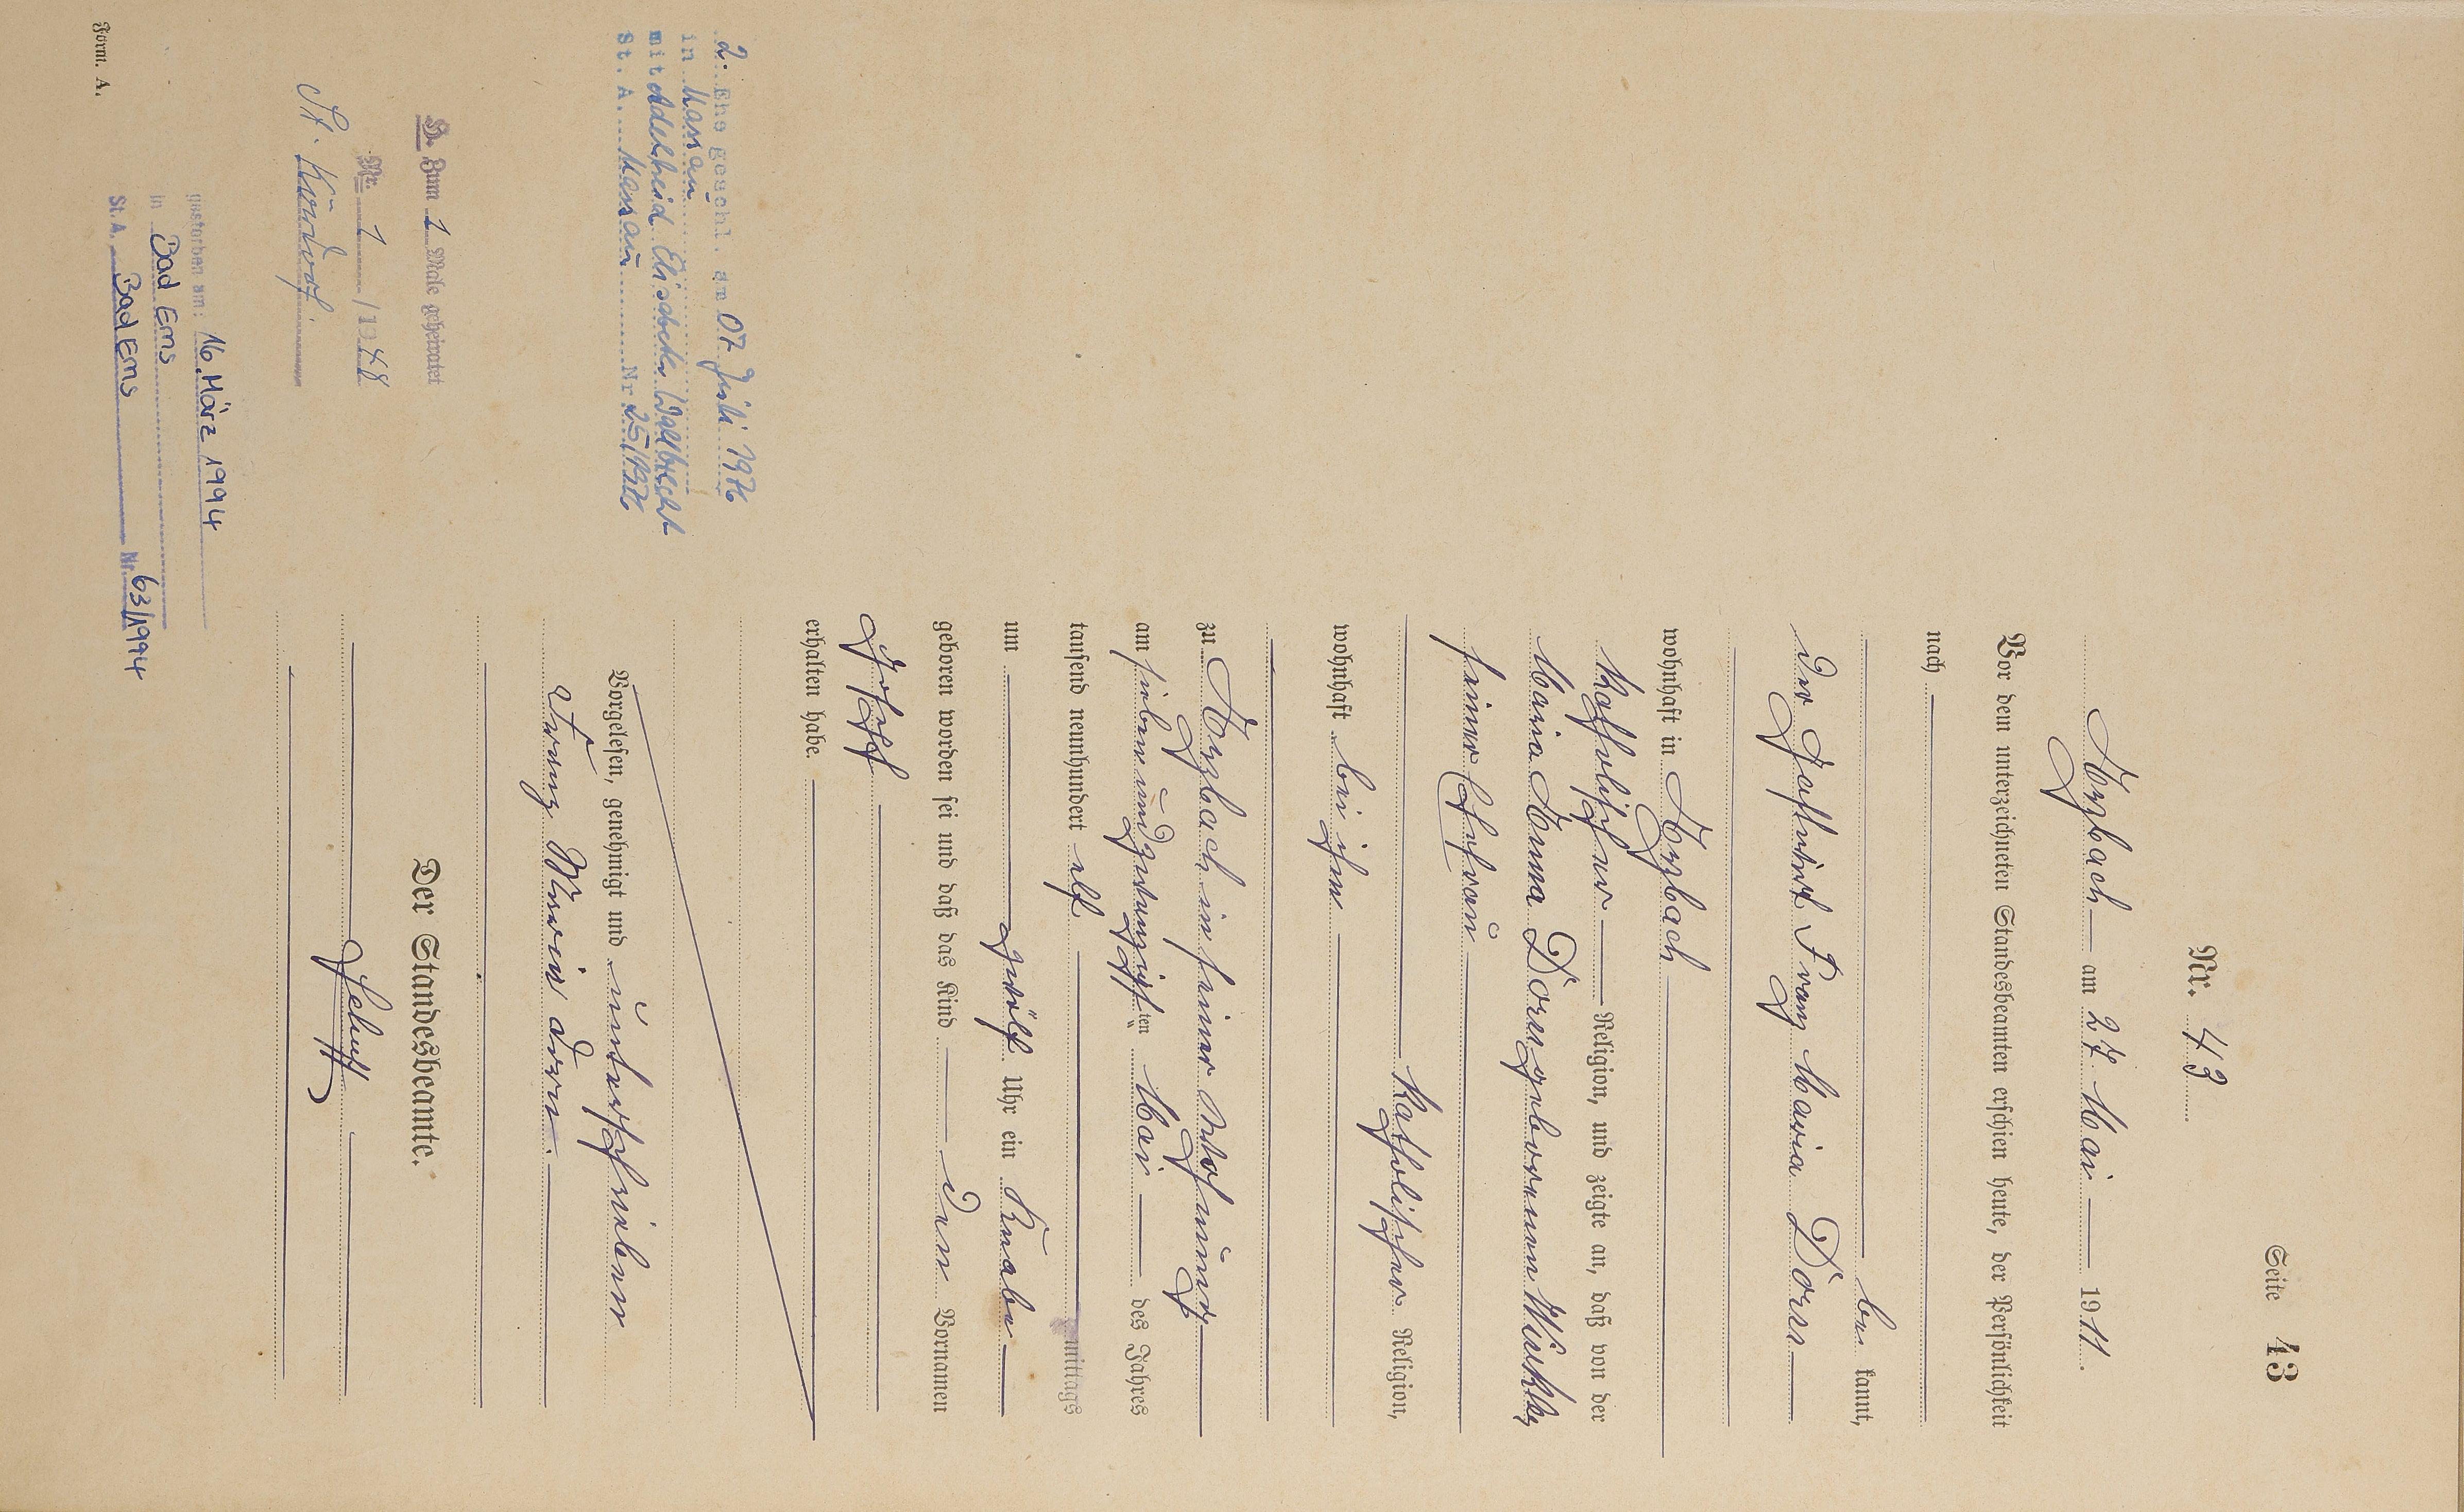 Seite 43
Nr. 43
Arzbach am 27. Mai 1911.
Vor dem unterzeichneten Standesbeamten erschien heute, der Persönlichkeit
nach
be kannt,
der Gastwirt Franz Maria Dorn
wohnhaft in Arzbach
katholischer Religion, und zeigte an, daß von der
Maria Anna Dorn geborenen Winkler,
seiner Ehefrau
katholischer Religion,
wohnhaft bei ihm
zu Arzbach in seiner Wohnung
am siebenundzwanzigsten Mai des Jahres
tausend neunhundert elf mittags
um zwölf Uhr ein Knabe
geboren worden sei und daß das Kind den Vornamen
Josef
erhalten habe.
Vorgelesen, genehmigt und unterschrieben
Franz Maria Dorn.
Der Standesbeamte.
2. Ehe geschl. am 07. Juli 1976
in Nassau
mit Adelheid Elisabeth Wallbrecht
St. A. Nassau Nr 25/1976
H. Zum 1 Male geheiratet
Nr. 1 / 1948
St.
gestorben am: 16. März 1994
in Bad Ems
St. A. Bad Ems Nr. 63/1994
Form. A.